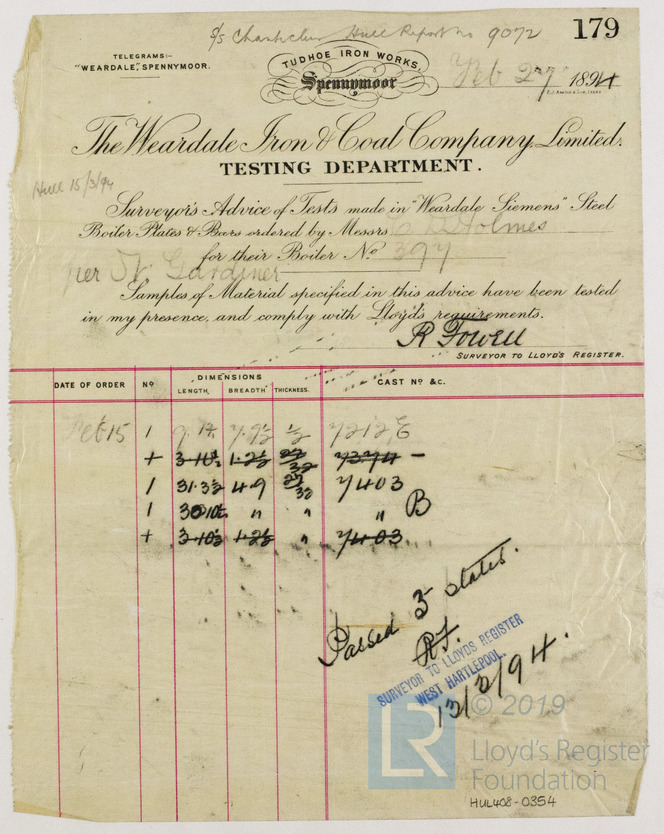 S/S Chanticleer Hull Report No 9072
179
TELEGRAMS:-
"WEARDALE," SPENNYMOOR.
TUDHOE IRON WORKS,
Spennymoor
Feb 27 1894
The Weardale Iron & Coal Company, Limited.
TESTING DEPARTMENT.
Hull 15/3/94
Surveyor's Advice of Tests made in "Weardale Siemens" Steel
Boiler Plates & Bars ordered by Messrs Holmes
for their Boiler No 397
per St. Gardiner
Samples of Material specified in this advice have been tested
in my presence, and comply with Lloyd's requirements.
R Towell
SURVEYOR TO LLOYD'S REGISTER.
DATE OF ORDER No DIMENSIONS CAST No &c.
LENGTH, BREADTH THICKNESS.
Feb 15 1 7.9½ ½ 7212 E
+ 3-10½ 1-2½ 27/32 7374 -
1 31.3½ 4.9 27/32 7403
1 30 10½ " " " B
+ 3-10½ 1-2½ " 7403
Passed 3 plates.
R.T.
SURVEYOR TO LLOYDS REGISTER
WEST HARTLEPOOL.
13/3/94.
LR
© 2019
Lloyd's Register
Foundation
HUL408-0354